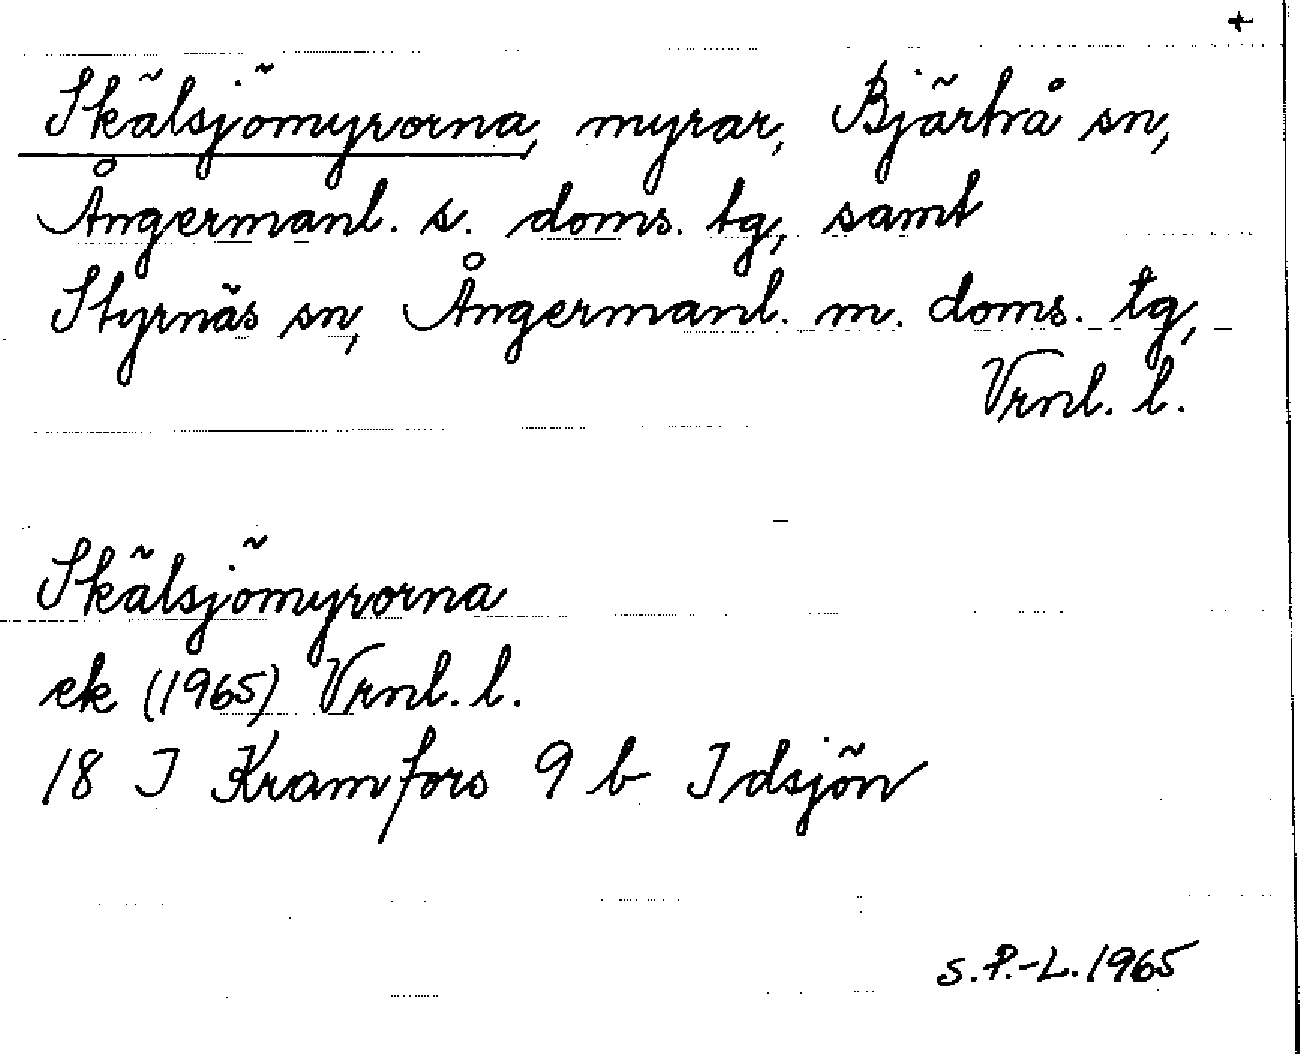 +
Skälsjömyrorna, myrar, Bjärtrå sn,
Ångermanl. s. doms. tg, samt
Styrnäs sn, Ångermanl. m. doms. tg,
Vrnl. l.
Skälsjömyrorna
ek (1965) Vrnl. l.
18 I Kramfors 9 b Idsjön
S. P.-L. 1965